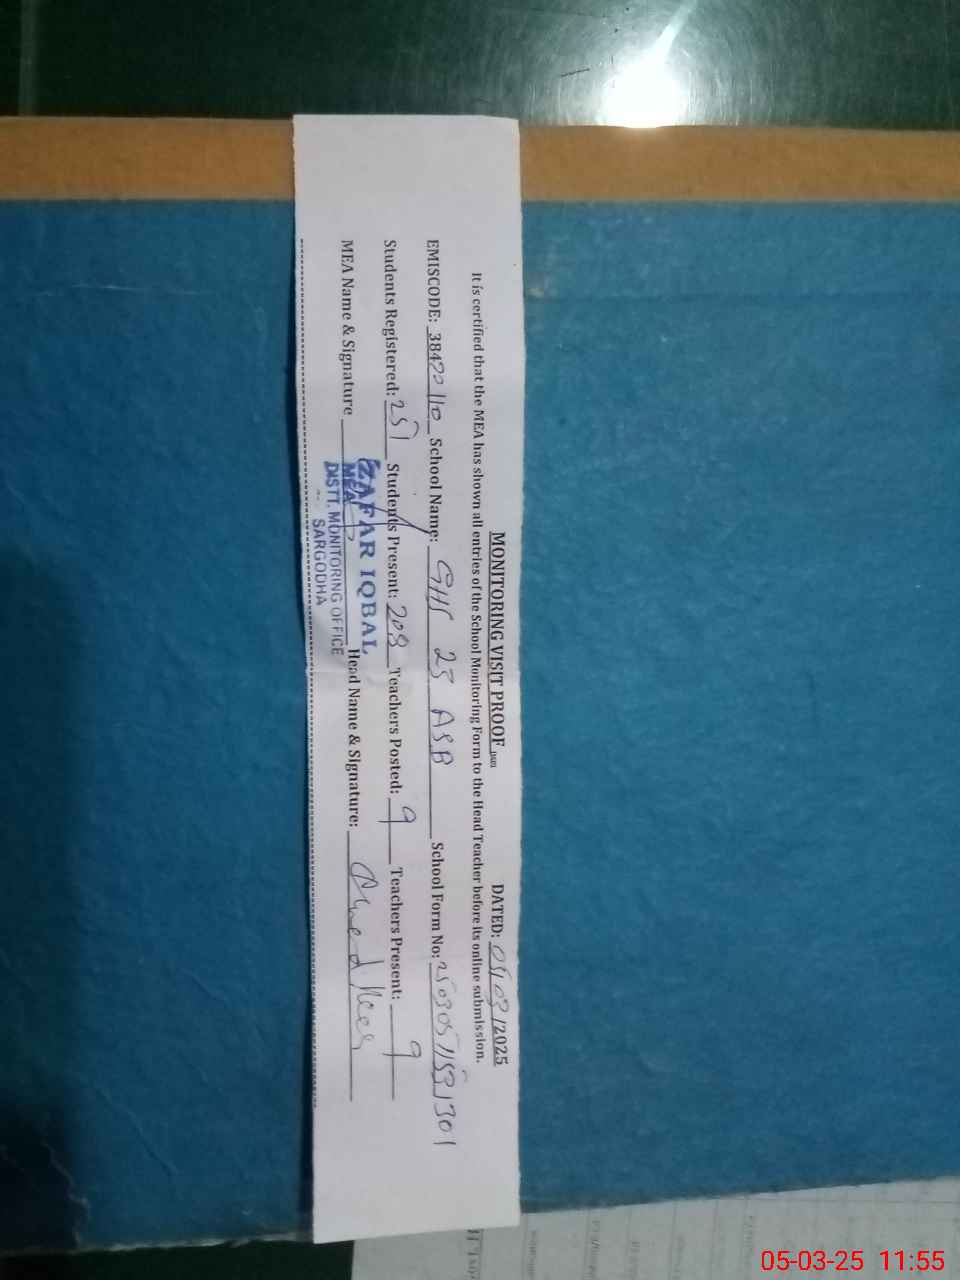 MONITORING VISIT PROOF DATED: 05/03/2025
It is certified that the MEA has shown all entries of the School Monitoring Form to the Head Teacher before its online submission.
EMISCODE: 38420110 School Name: GHS 23 ASB School Form No: 250305115321301
Students Registered: 251 Students Present: 208 Teachers Posted: 9 Teachers Present: 9
MEA Name & Signature Head Name & Signature:
ZAFAR IQBAL
MEA
DISTT. MONITORING OFFICE
SARGODHA
05-03-25 11:55